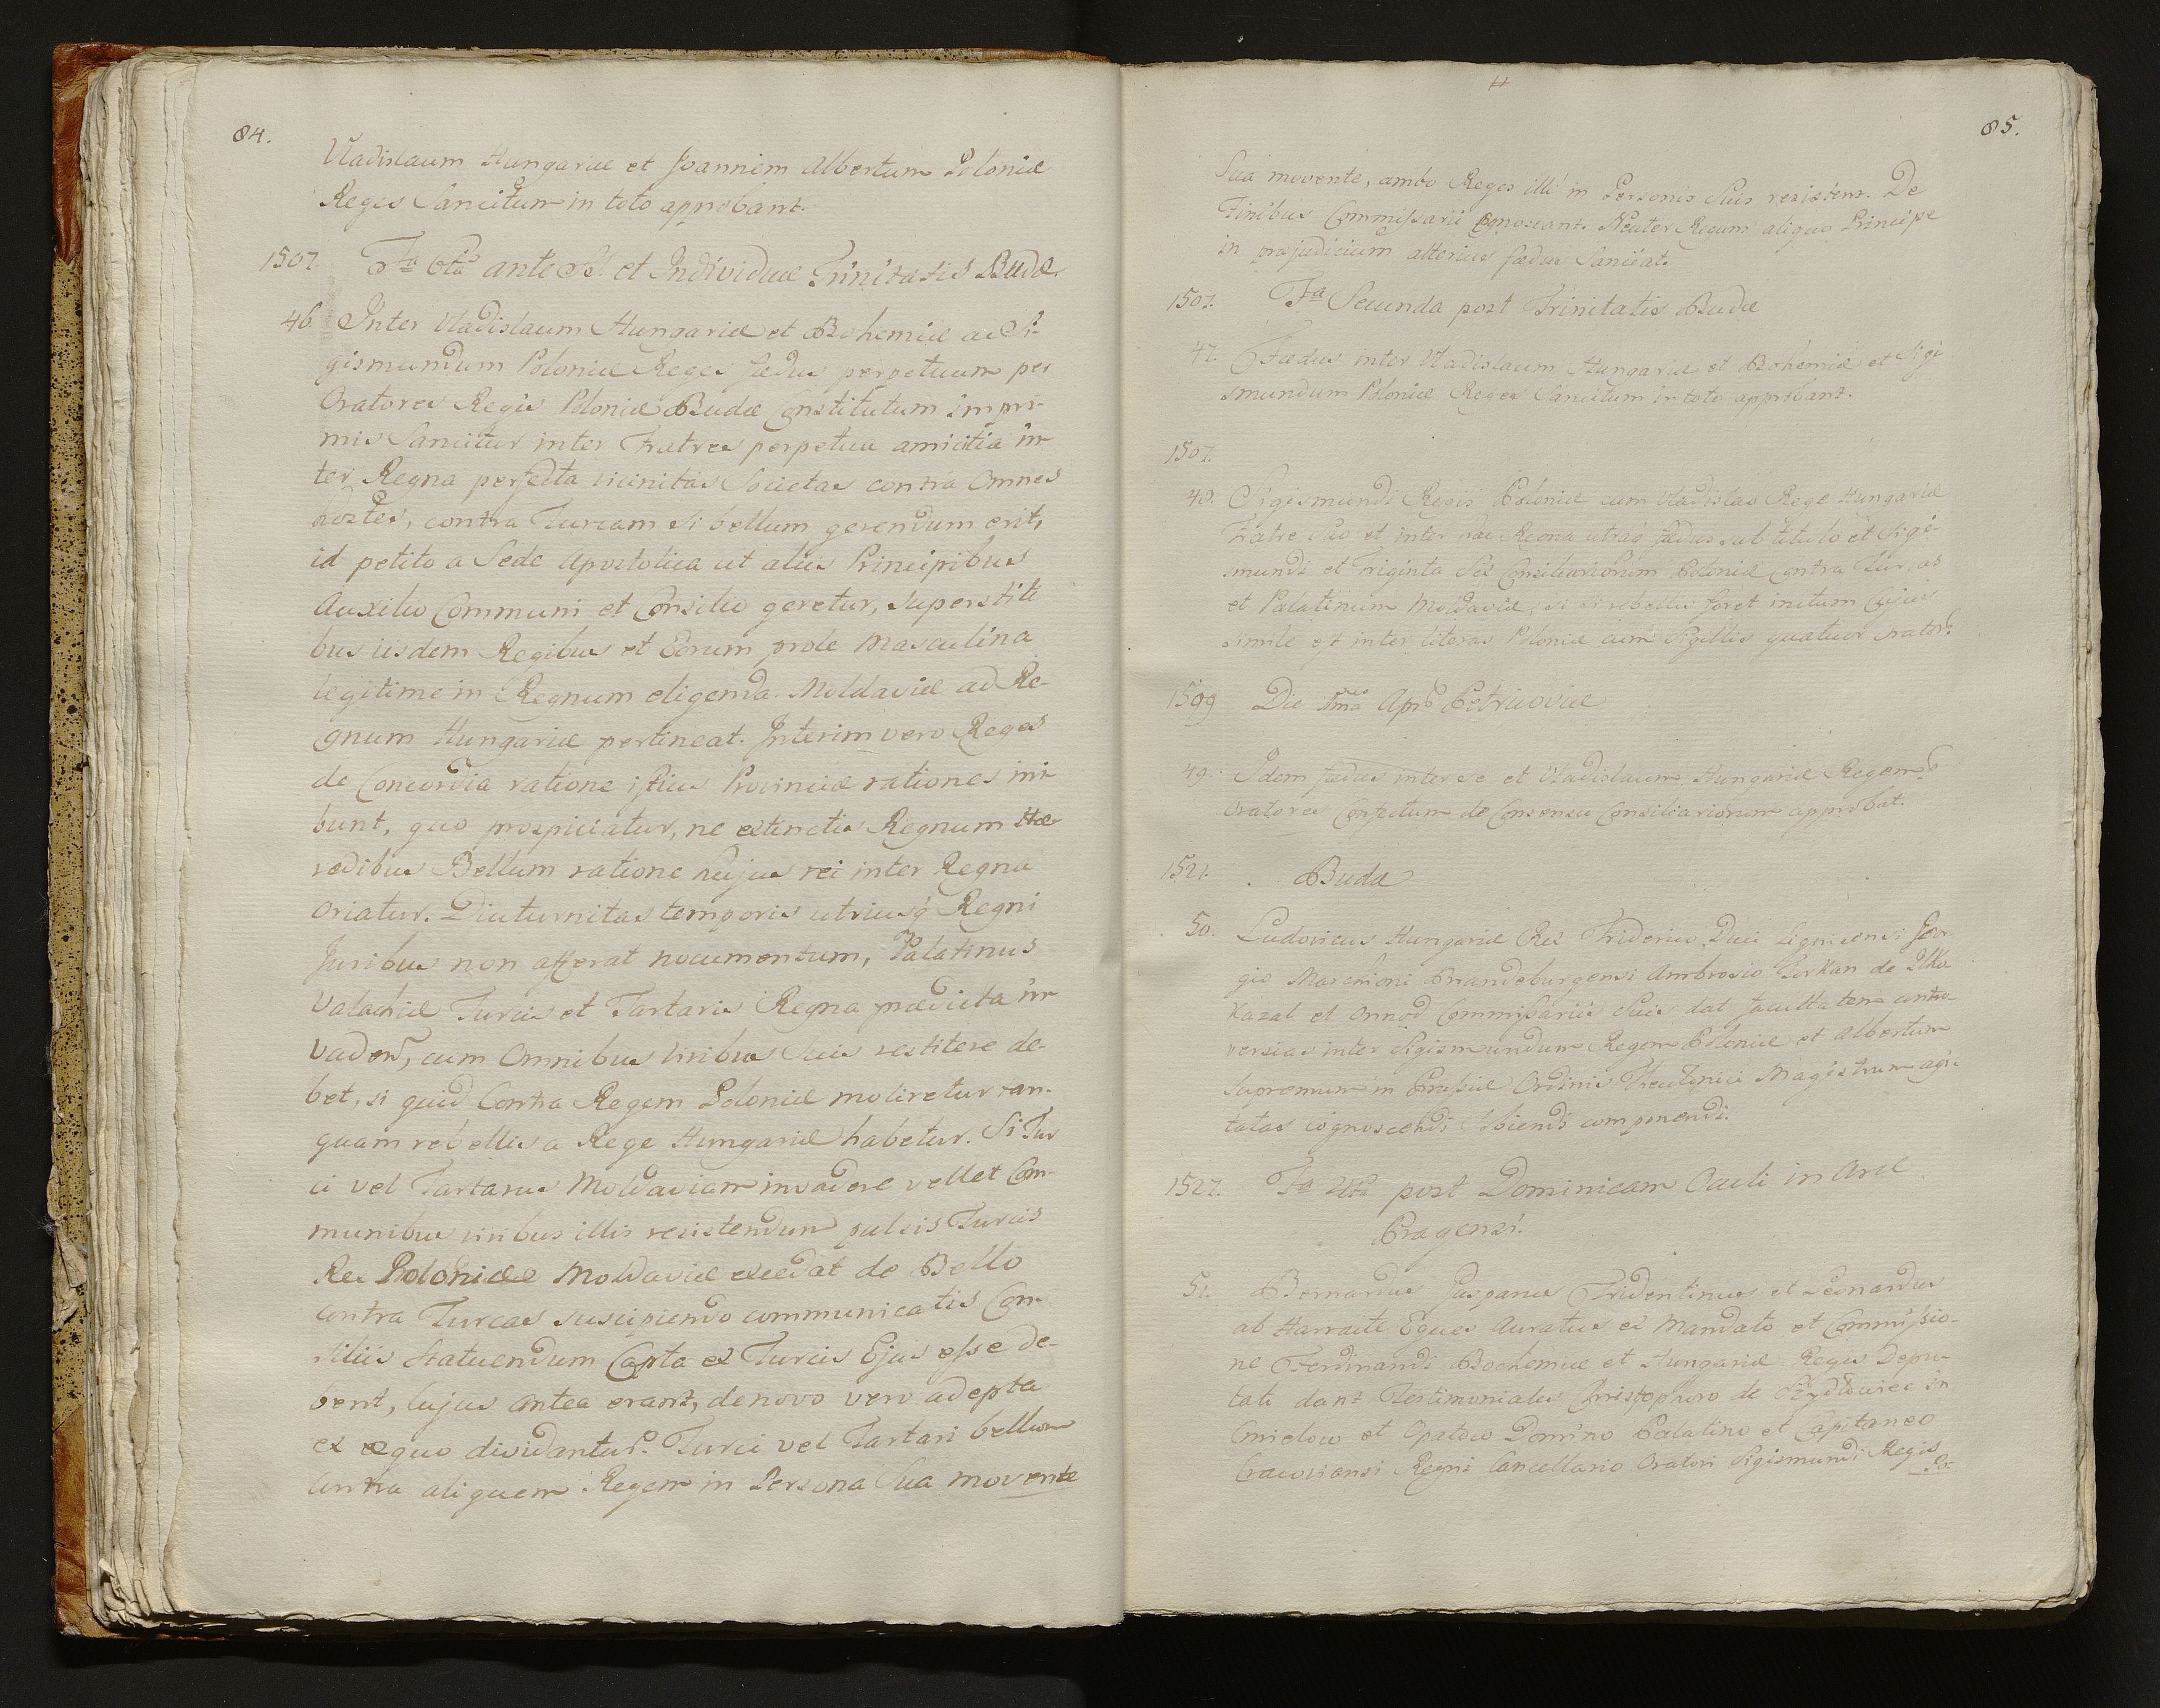 84.
Vladislaum Hungariæ et Joannem Albertum Poloniæ
Reges Sancitum in toto approbant.
1507. Fa 6ta ante SS. et Individuæ Trinitatis Budæ
46 Inter Vladislaum Hungariæ et Bohemiæ ac Si-
gismundum Poloniæ Reges fædus perpetuum per
Oratores Regis Poloniæ Budæ Constitutum impri-
mis Sancitur inter Fratres perpetua amicitia in-
ter Regna perfecta vicinitas Societas contra Omnes
hostes, contra Turcam si bellum gerendum erit,
id petito a Sede Apostolica ut aliis Principibus
Auxilio Communi et Consilio geretur, superstiti
bus iisdem Regibus et Eorum prole Masculina
legitime in Regnum eligenda. Moldaviæ ad Re-
gnum Hungariæ pertineat. Interim vero Reges
de Concordia ratione istius Provinciæ rationes ini-
bunt, quo prospiciatur, ne extinctis Regnum Hæ
redibus Bellum ratione hujus rei inter Regna
Oriatur. Diuturnitas temporis utriusq Regni
Juribus non afferat nocumentum, Palatinus
Valachiæ Turcis et Tartaris Regna prædicta in-
vaden, cum Omnibus viribus Suis restitere de-
bet, si quid Contra Regem Poloniæ moliretur tan-
quam rebellis a Rege Hungariæ habetur. Si Tur
ci vel Tartarus Moldaviam invadere vellet Com-
munibus viribus illis resistendum pulsis Turcis
Rex Poloniæ Moldaviæ excedat de Bello
Contra Turcas suscipiendo communicatis Con-
siliis Statuendum Capta ex Turcis Ejus esse de-
bent, cujus antea erant, denovo vero adepta
ex æquo dividantur. Turci vel Tartari bellum
Contra aliquem Regem in Persona Sua movente
85.
Sua movente, ambo Reges illi in Personis Suis resistent. De
Finibus Commissarii Cognoscant. Neuter Regum aliquo Principe
in præjudicium alterius fædus Sanciat.
1507. Fa Secunda post Trinitatis Budæ
47. Fædus inter Vladislaum Hungariæ et Bohemiæ et Sigi
smundum Poloniæ Reges Sancitum in toto approbant.
1507.
48. Sigismundi Regis Poloniæ cum Vladislao Rege Hungariæ
Fratre suo et inter hæc Regna utraq fædus sub titulo et Sigi-
smundi et Triginta Sex Consiliariorum Poloniæ Contra Turcas
et Palatinum Moldaviæ, si si rebellis foret initum Cujus
simile est inter literas Poloniæ cum Sigillis quatuor
1509 Die Apr Petricoviæ
49. Idem fædus inter se et Vladislaum Hungariæ Regem
Oratores Confectum de Consensu Consiliariorum approbat.
1521. Budæ
50. Ludovicus Hungariæ Rex Friderico Duci Lignicensi Geor-
gio Marchioni Brandeburgensi Ambrosio Sarkan de
Kazal et Onnod Commissariis Suis dat facultatem contro-
versias inter Sigismundum Regem Poloniæ et Albertum
Supremum in Prussiæ Ordinis Theutonici Magistrum agi-
tatas cognoscendi componendi.
1527. Fa post Dominicam Oculi in Arce
Pragensi.
51. Bernardus Tridentinus et Leonardus
ab Harrach Eques Auratus ex Mandato et Commissio-
ne Ferdinandi Bochemiæ et Hungariæ Regis Depu-
tati dant Testimoniales Christophoro de Szydłowiec in
Cmielow et Opatow Domino Palatino et Capitaneo
Cracoviensi Regni Cancellario Oratori Sigismundi Regis
Po-